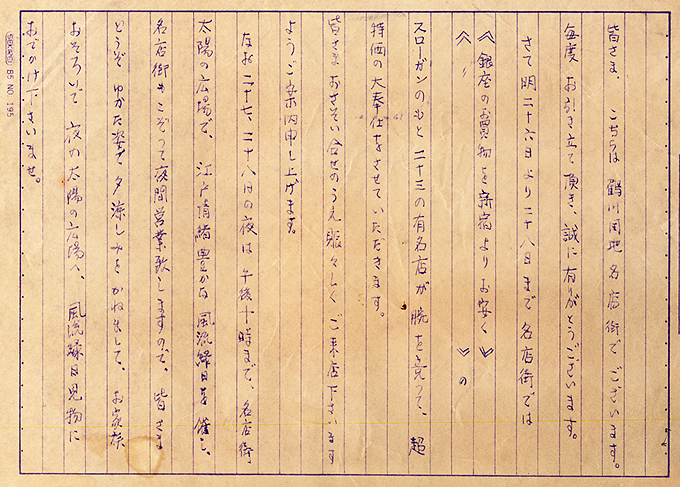 皆さま、こちらは鶴川団地名店街でございます。
毎度お引き立て頂き、誠に有りがとうございます。
さて明二十六日より二十八日まで名店街では
《銀座のお買物を新宿よりお安く》
《 〃 》の
スローガンのもと二十三の有名店が腕を競って、超
特価の大奉仕をさせていただきます。
皆さまおさそい合せのうえ賑々しくご来店下さいます
ようご案内申し上げます。
なお二十七、二十八日の夜は午後十時まで、名店街
太陽の広場で、江戸情緒豊かな風流縁日を催し、
名店街もこぞって夜間営業致しますので、皆さま
どうぞゆかた姿で夕涼しみをかねまして、お家族
おそろいで夜の太陽の広場へ、風流縁日見物に
おでかけ下さいませ。
B5 NO. 195